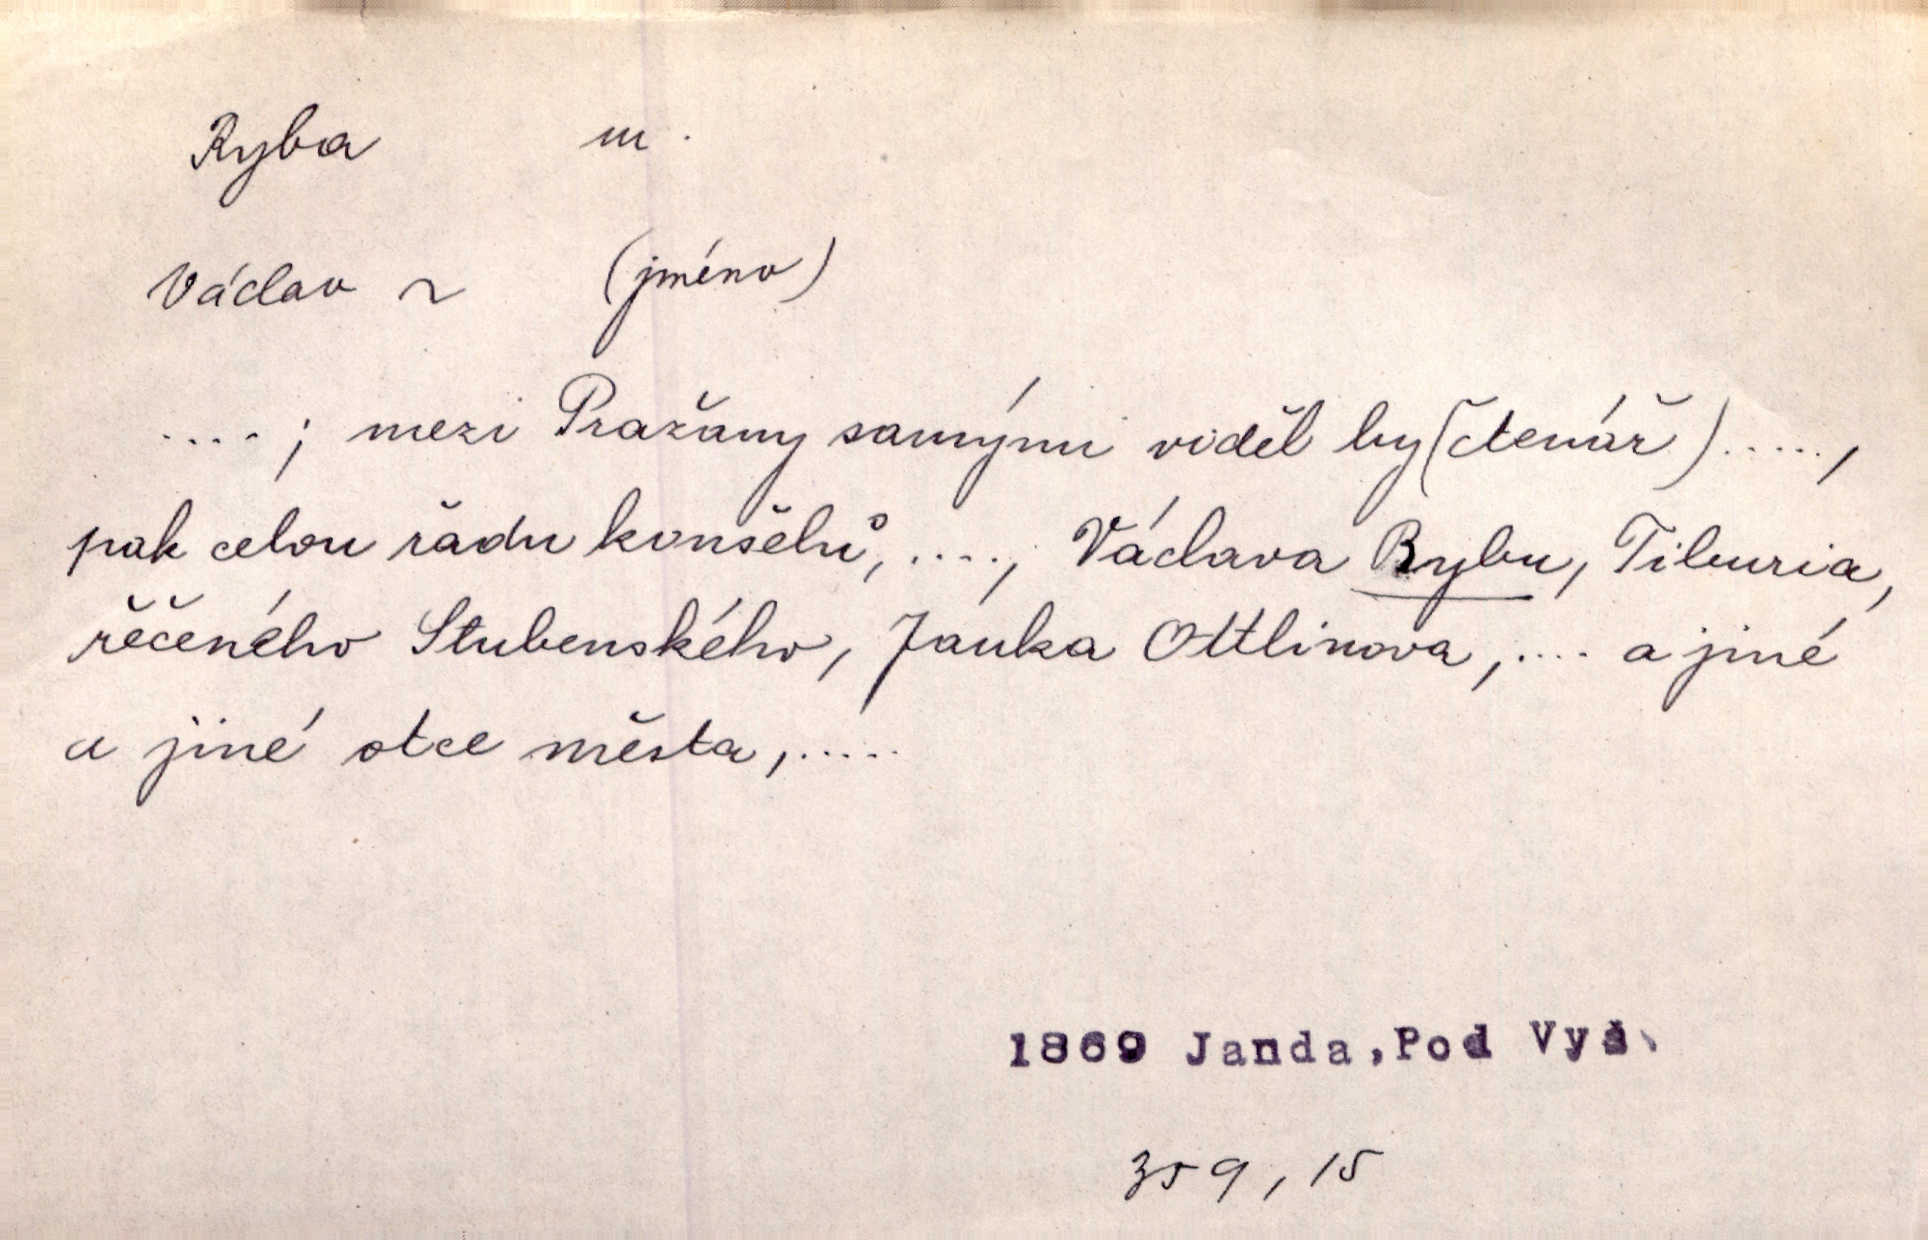 Ryba m.
Václav ~ (jméno)
....; mezi Pražany samými viděl by (čtenář).....,
pak celou řadu konšelů, ...., Václava Rybu, Tiburia,
řěčeného Stubenského, Janka Ottlinova, .... a jiné
a jiné otce města, .....
1869 Janda, Pod Vyš.
359, 15